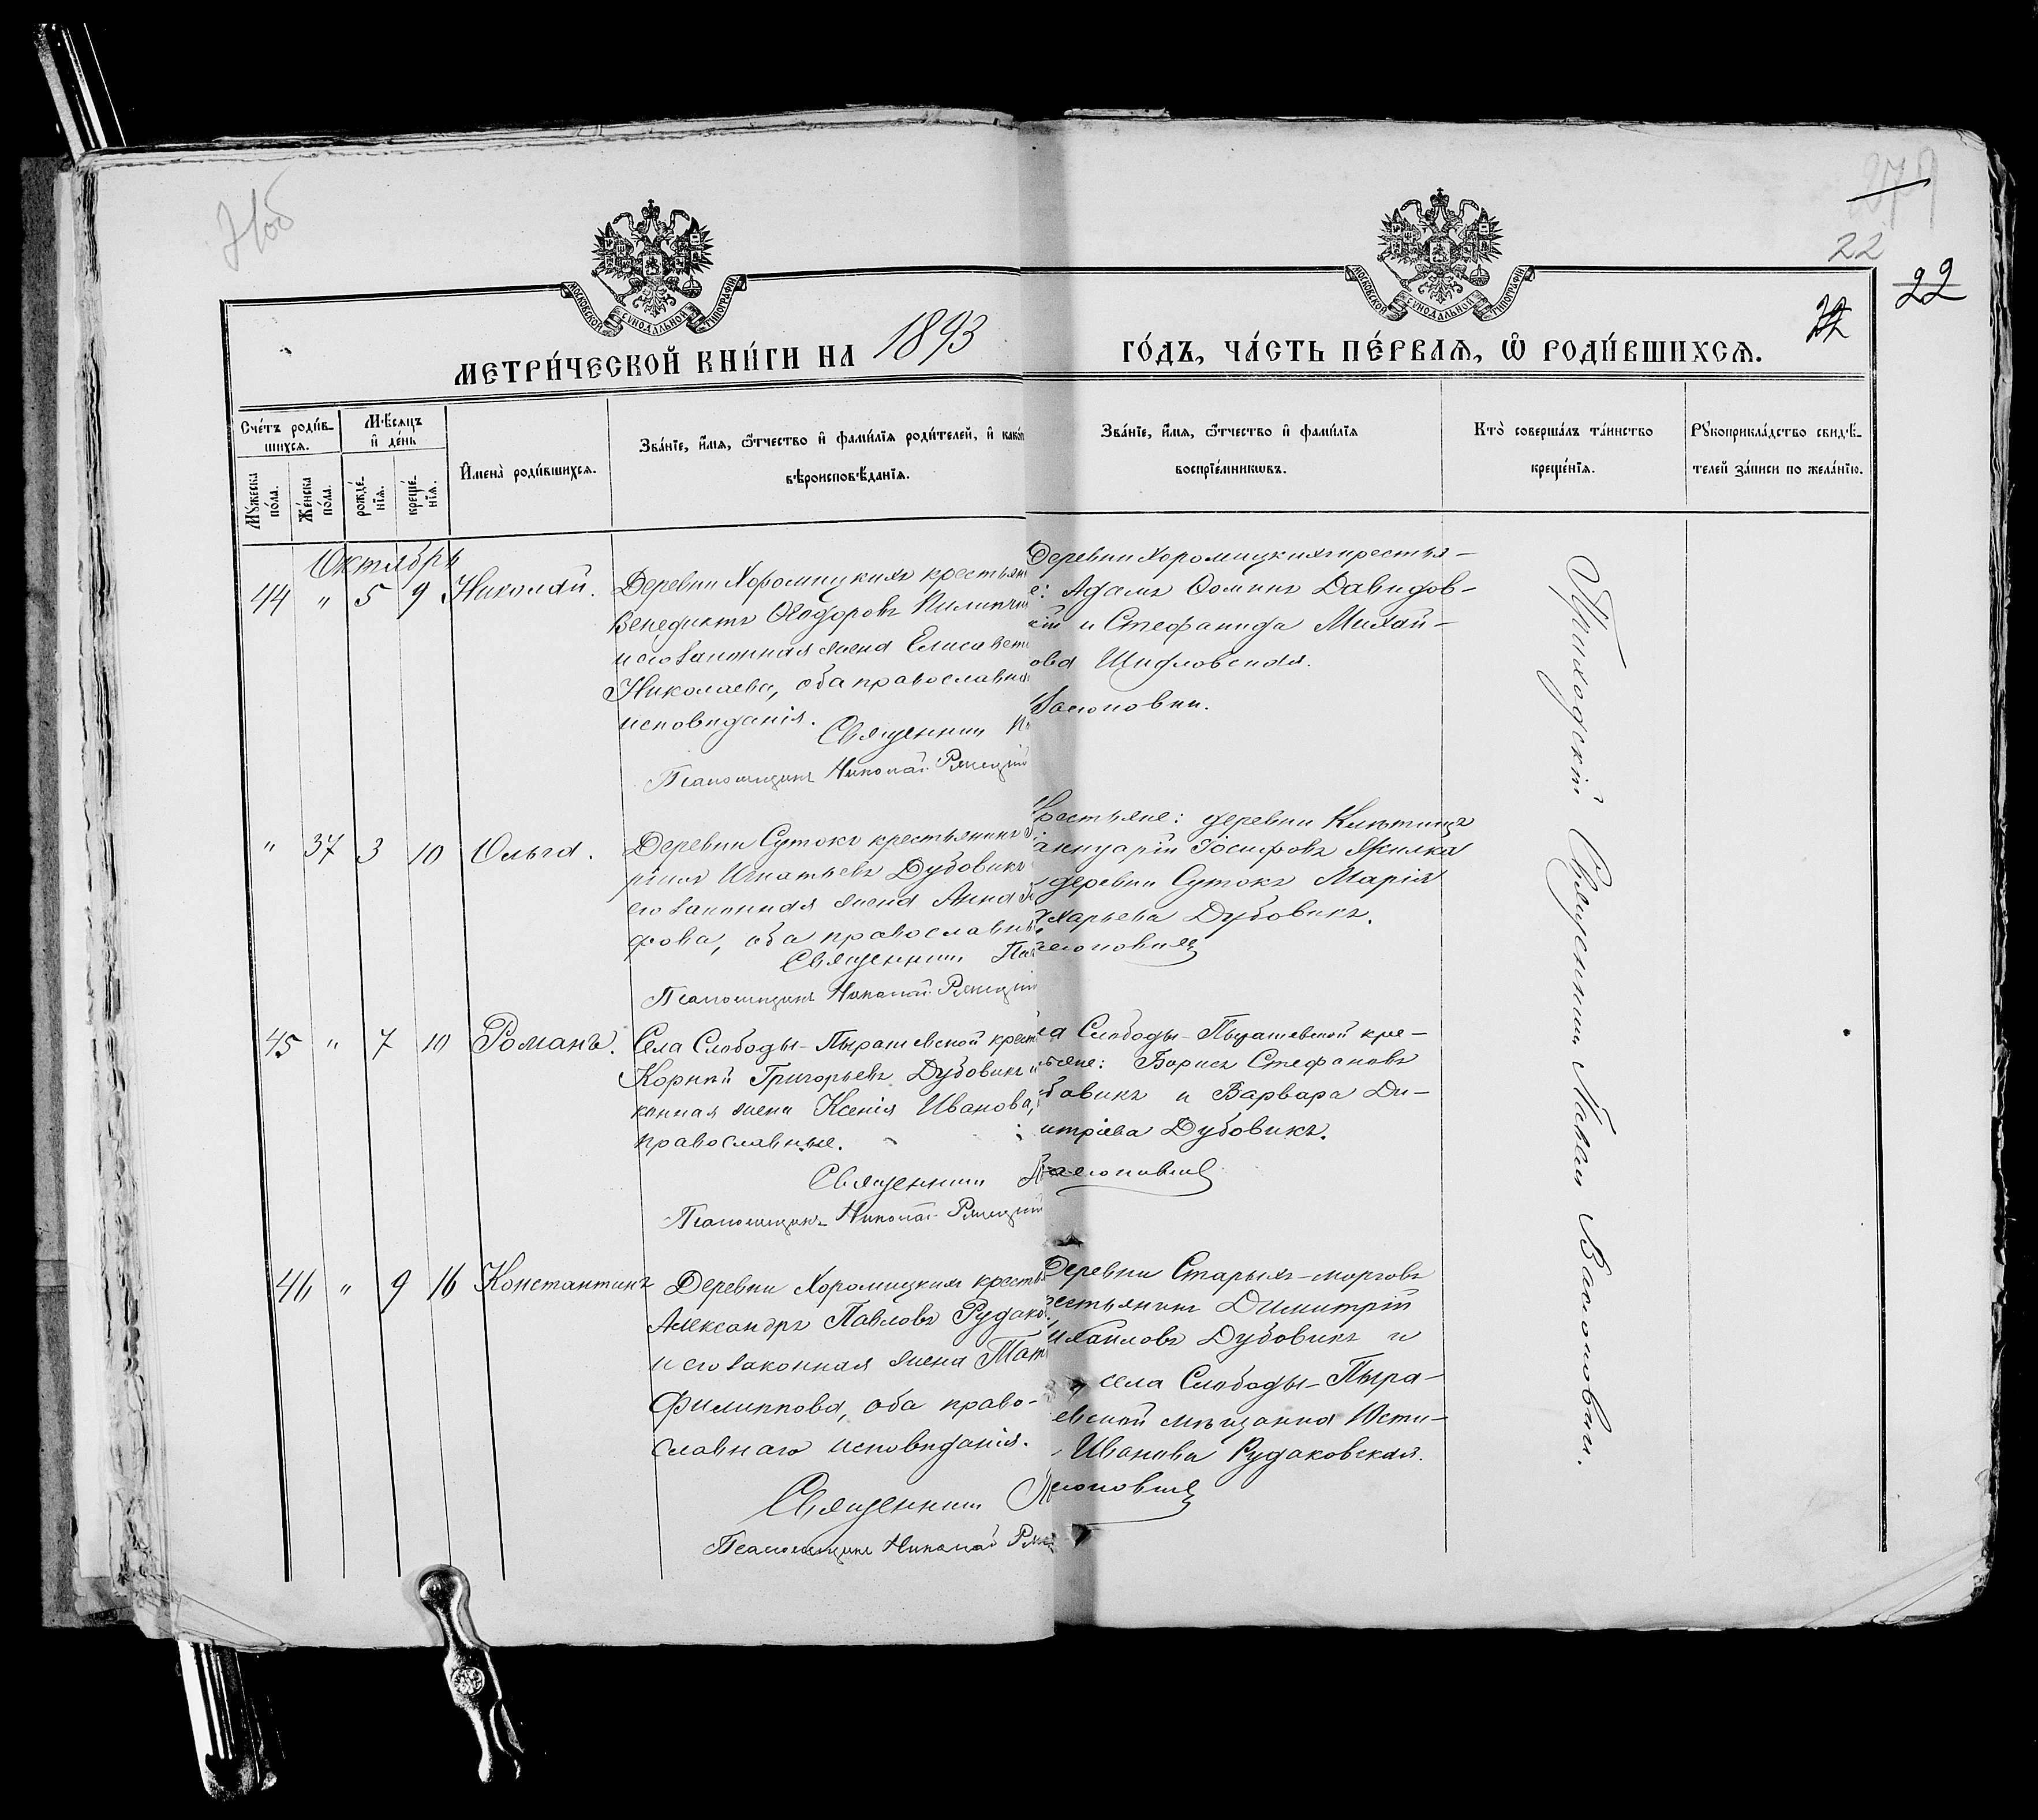 22
22
МОСКОВСКОЙ СѴНОДАЛЬНОЙ ТИПОГРАФІИ
МОСКОВСКОЙ СѴНОДАЛЬНОЙ ТИПОГРАФІИ
МЕТРИ́ЧЕСКОЙ КНИ́ГИ НА 1893
ГО́ДЪ, ЧА́СТЬ ПЕ́РВАѦ, Ѿ РОДИ́ВШИХСѦ.
Сче́тъ роди́в-
шихсѧ.
Мꙋ́жеска
по́ла.
Же́нска
по́ла.
Мѣ́сѧцъ
и҆ де́нь
рожде́-
нїѧ.
креще́-
нїѧ.
И҆мена̀ роди́вшихсѧ.
Зва́нїе, и҆́мѧ, ѻ҆́тчество и҆ фами́лїѧ роди́телей, и҆ како́г
вѣроисповѣ́данїѧ.
Зва́нїе, и҆́мѧ, ѻ҆́тчество и҆ фами́лїѧ
воспрїе́мникѡвъ.
Кто̀ соверша́лъ та́инство
креще́нїѧ.
Рꙋкоприкла́дство свидѣ́-
телей за́писи по жела́нїю.
Октябрь
44 " 5 9 Николай.
Деревни Хоромицкихъ крестьян
Венедиктъ Ѳеодоровъ Пилипчи
и его законная жена Елисавет
Николаева, оба православна
исповѣданія.
Священникъ
Псаломщикъ Николай
Деревни Хоромицкихъ крестья-
е: Адамъ Ѳоминъ Давидов-
кій и Стефанида Михай-
ова Шидловская.
" 37 3 10 Ольга.
Деревни Сутокъ крестьянинъ
Игнатьевъ Дубовикъ
его законная жена Анна
фова, оба православны
Священникъ Па
Псаломщикъ Николай
Крестьяне: деревни Клѣтищъ
ануарій Іосифовъ Жилка
деревни Сутокъ Марія
харьева Дубовикъ.
45 " 7 10 Романъ.
Села Слободы-Пырашевской крест
Корній Григорьевъ Дубовикъ и
конная жена Ксенія Иванова,
православные.
Священникъ
Псаломщикъ Николай
ла Слободы-Пырашевской кре-
тьяне: Борисъ Стефановъ
бовикъ и Варвара Ди-
итріева Дубовикъ.
46 " 9 16 Константинъ
Деревни Хоромицкихъ кресть
Александръ Павловъ Рудако
и его законная жена Тат
Филиппова, оба право-
славнаго исповѣданія.
Священникъ
Псаломщикъ Николай
Деревни Старыхъ-морговъ
рестьянинъ Димитрій
ихаиловъ Дубовикъ и
села Слободы-Пыра-
евской мѣщанка Усти-
Иванова Рудаковская.
Приходскій Священникъ Павелъ